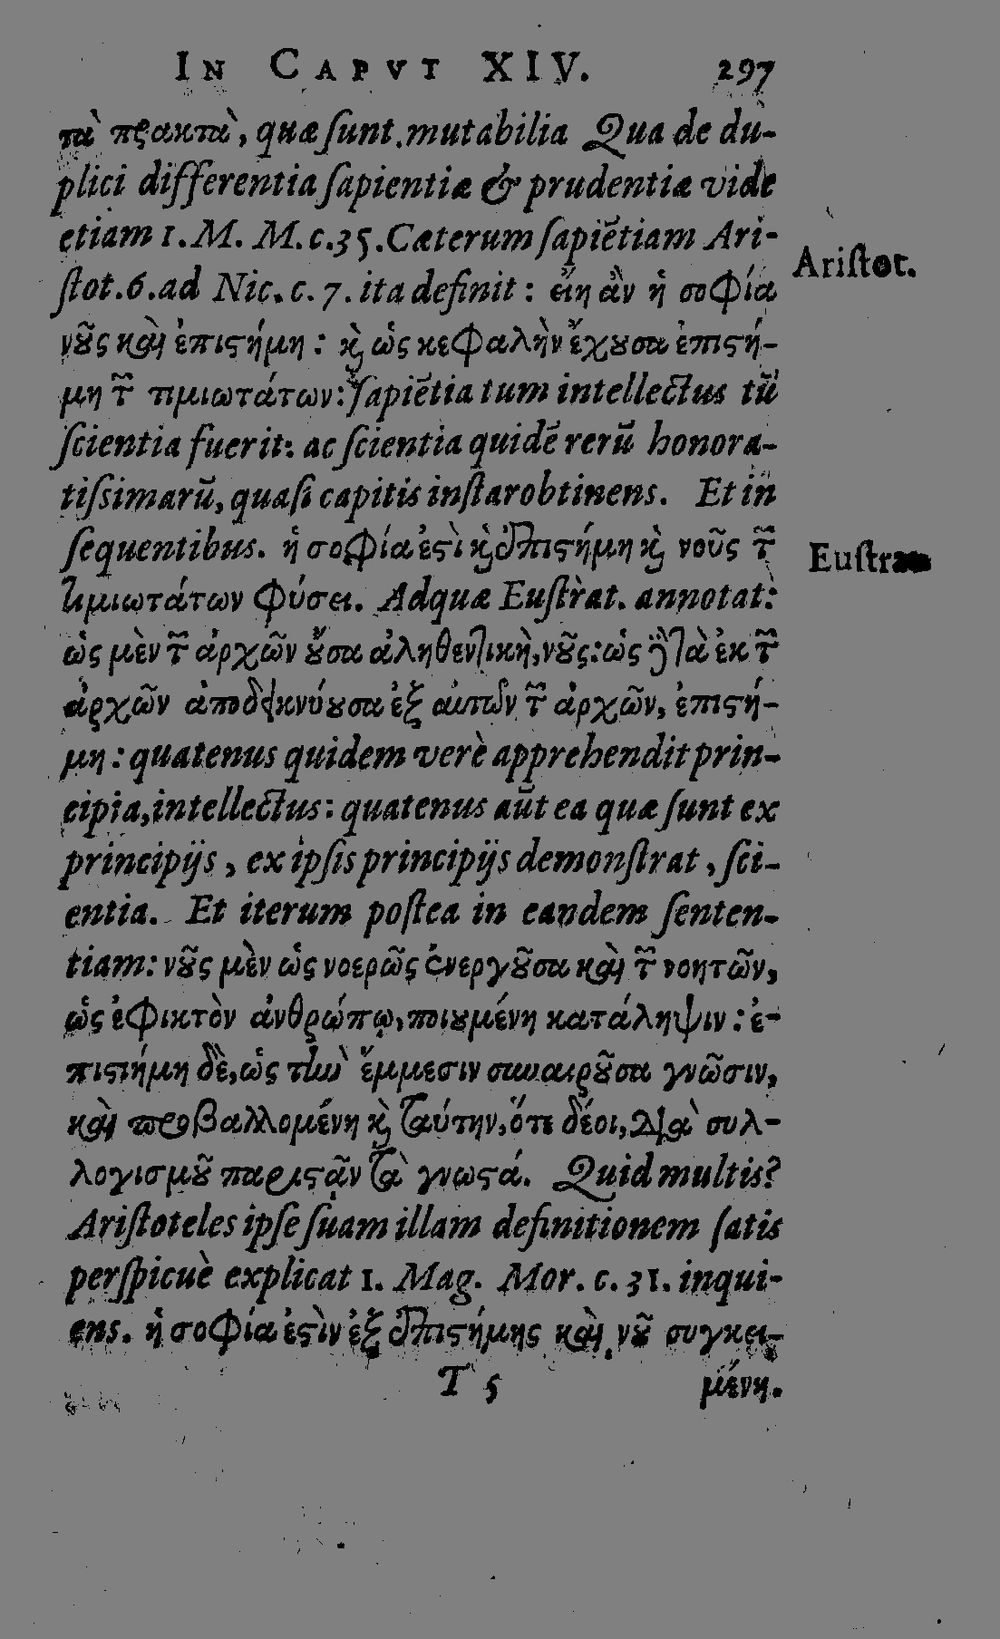 IN CAPVT XIV. 297
τὰ πρακτὰ, quæ ſunt mutabilia Qua de du-
plici differentia ſapientiæ & prudentiæ vide
etiam 1. M. M. c. 35. Cæterum ſapiẽtiam Ari-
Ariſtot.
ſtot. 6. ad Nic. c. 7. ita definit: εἴη ἂν ἡ σοφία
νοῦς καὶ ἐπιστήμη: καὶ ὡς κεφαλὴν ἔχουσα ἐπιστή-
μη τῶν τιμιωτάτων: ſapiẽtia tum intellectus tũ
ſcientia fuerit: ac ſcientia quidẽ rerũ honora-
tiſſimarũ, quaſi capitis inſtar obtinens. Et in
ſequentibus. ἡ σοφία ἐστὶ καὶ ἐπιστήμη καὶ νοῦς τῶν
Euſtra
τιμιωτάτων φύσει. Ad quæ Euſtrat. annotat:
ὡς μὲν τῶν ἀρχῶν οὖσα ἀληθευτικὴ, νοῦς: ὡς δὲ τὰ ἐκ τῶν
ἀρχῶν ἀποδεικνύουσα ἐξ αὐτῶν τῶν ἀρχῶν, ἐπιστή-
μη: quatenus quidem verè apprehendit prin-
cipia, intellectus: quatenus aũt ea quæ ſunt ex
principijs, ex ipſis principijs demonſtrat, ſci-
entia. Et iterum poſtea in eandem ſenten-
tiam: νοῦς μὲν ὡς νοερῶς ἐνεργοῦσα καὶ τῶν νοητῶν,
ὡς ἐφικτὸν ἀνθρώπῳ, ποιουμένη κατάληψιν: ἐ-
πιστήμη δὲ, ὡς τὴν ἔμμεσιν συναιροῦσα γνῶσιν,
καὶ προβαλλομένη καὶ ταύτην, ὅτε δέοι, διὰ συλ-
λογισμοῦ παριστᾷν τὰ γνωστά. Quid multis?
Ariſtoteles ipſe ſuam illam definitionem ſatis
perſpicuè explicat 1. Mag. Mor. c. 31. inqui-
ens. ἡ σοφία ἐστὶν ἐξ ἐπιστήμης καὶ νοῦ συγκει-
T 5 μένη.